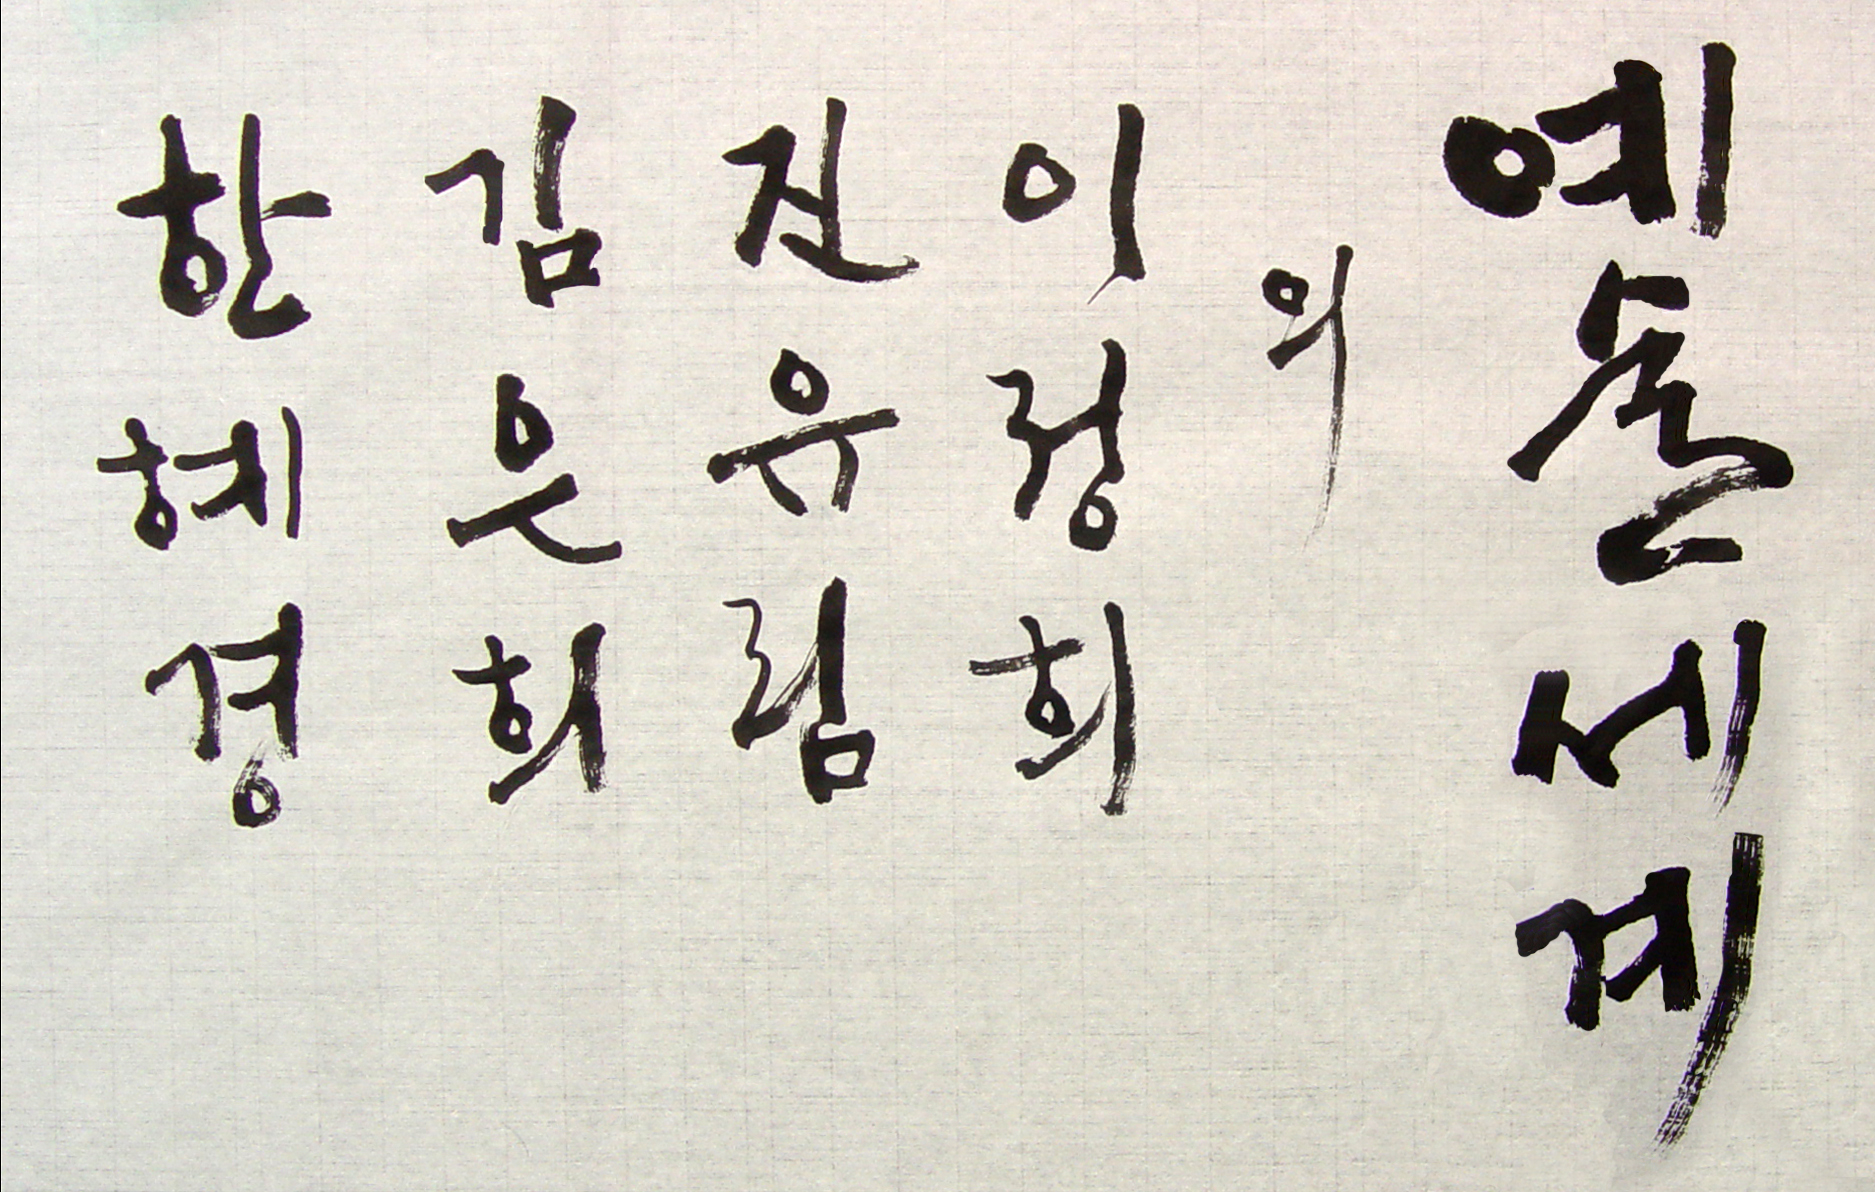 예술세계
의
이정희
진유림
김은희
한혜경